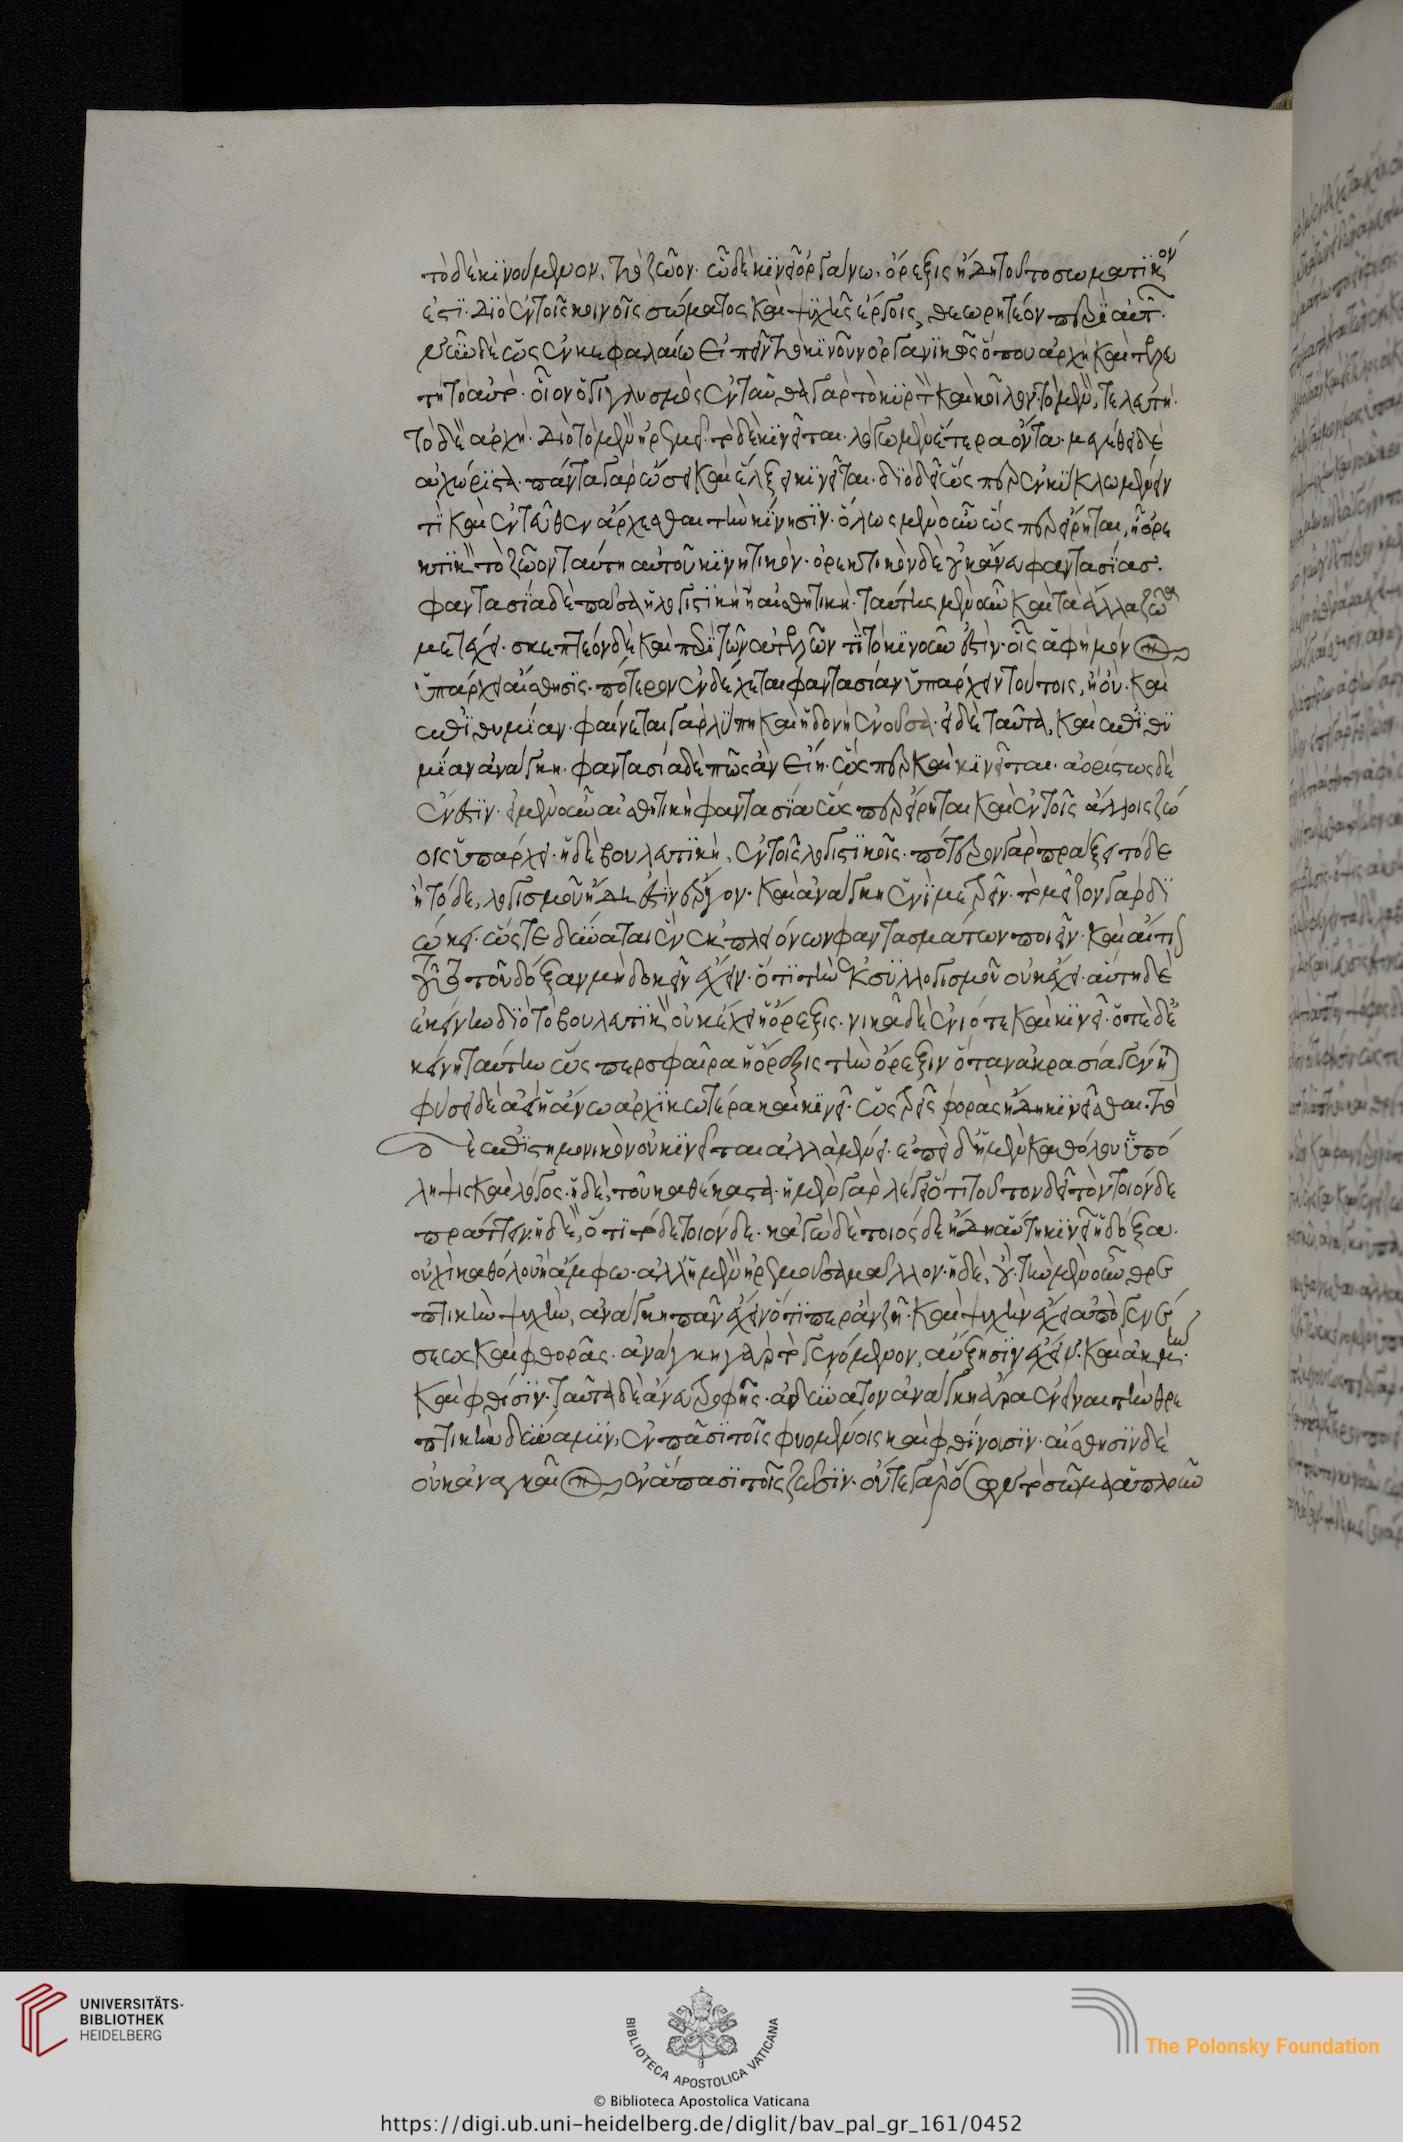 τὸ δὲ κινούμενον, τὸ ζῶον. ὧ δὲ κινεῖ ὀργάνω, ὄρεξις ἤδη τοῦτο σωματικόν
ἐστι. διὸ ἐν τοῖς κοινοῖς σώματος καὶ ψυχῆς ἔργοις, θεωρητέον περὶ αὐτοῦ.
νῦν δὲ ὡς ἐν κεφαλαίω εἰπεῖν τὸ κινοῦν ὀργανικῶς ὅπου ἀρχὴ καὶ τελευ
τὴ τὸ αὐτό. οἷον ὁ γιγλυσμὸς ἐνταῦθα γὰρ τὸ κυρτὸν καὶ κοῖλον. τὸ μὲν, τελευτή.
τὸ δὲ ἀρχή. διὸ τὸ μὲν ἠρεμεῖ. τὸ δὲ κινεῖται. λόγω μὲν ἕτερα ὄντα. μεγέθει δὲ
ἀχώριστα. πάντα γὰρ ὤσει καὶ ἕλξει κινεῖται. διὸ δεῖ ὥσπερ ἐν κύκλω μένειν
τὶ καὶ ἐντεῦθεν ἄρχεσθαι τὴν κίνησιν. ὅλως μὲν οὖν ὥσπερ εἴρηται, ἧ ὀρε
κτικὸν τὸ ζῶον ταύτη αὑτοῦ κινητικόν. ὀρεκτικὸν δὲ οὐκ ἄνευ φαντασίας.
φαντασία δὲ πᾶσα ἢ λογιστικὴ ἢ αἰσθητική. ταύτης μὲν οὖν καὶ τὰ ἄλλα ζῶα
μετέχει. σκεπτέον δὲ καὶ περὶ τῶν ἀτελῶν τί τὸ κινοῦν ἐστὶν. οἷς ἁφῆ μόνον
ὑπάρχει αἴσθησις. πότερον ἐνδέχεται φαντασίαν ὑπάρχειν τούτοις, ἢ οὔ. καὶ
ἐπιθυμίαν. φαίνεται γὰρ λύπη καὶ ἡδονὴ ἐνοῦσα. εἰ δὲ ταῦτα, καὶ ἐπιθυ
μίαν ἀνάγκη. φαντασία δὲ πῶς ἂν εἴη. ὥσπερ καὶ κινεῖται. ἀορίστως δὲ
ἔνεστιν. ἡ μὲν οὖν αἰσθητικὴ φαντασία ὥσπερ εἴρηται καὶ ἐν τοῖς ἄλλοις ζώ
οις ὑπάρχει. ἡ δὲ βουλευτικὴ, ἐν τοῖς λογιστικοῖς. πότερον γὰρ πράξει τόδε
ἢ τόδε, λογισμοῦ ἤδη ἐστὶν ἔργον. καὶ ἀνάγκη ἑνὶ μετρεῖν. τὸ μεῖζον γὰρ δι
ώκει. ὥστε δύναται ἓν ἐκ πλειόνων φαντασμάτων ποιεῖν. καὶ αἴτιον
τοῦτο τοῦ δόξαν μὴ δοκεῖν ἔχειν. ὅτι τὴν ἐκ συλλογισμοῦ οὐκ ἔχει. αὕτη δὲ
ἐκείνην διὸ τὸ βουλευτικὸν οὐκ ἔχει ἡ ὄρεξις. νικᾶ δὲ ἐνίοτε καὶ κινεῖ. ὁτὲ δὲ
κείνη ταύτην ὥσπερ σφαῖρα ἡ ὄρεξις τὴν ὄρεξιν ὅταν ἀκρασία γένηται
φύσει δὲ ἀεὶ ἡ ἄνω ἀρχικωτέρα καὶ κινεῖ. ὡς τρεῖς φορὰς ἤδη κινεῖσθαι. τὸ
δὲ ἐπιστημονικὸν οὐ κινεῖται ἀλλὰ μένει. ἐπεὶ δ' ἡ μὲν καθόλου ὑπό
ληψις καὶ λόγος. ἡ δὲ, τοῦ καθέκαστα. ἡ μὲν γὰρ λέγει ὅτι τοῦτον δεῖ τὸν τοιόνδε
πράττειν. ἡ δὲ, ὅτι τόδε τοιόνδε. κἀγὼ δὲ ποιόσδε ἤδη αὕτη κινεῖ ἡ δόξα.
οὐχὶ καθόλου ἢ ἄμφω. ἀλλ' ἡ μὲν ἠρεμοῦσα μᾶλλον. ἡ δὲ, οὔ. τὴν μὲν οὖν θρε
πτικὴν ψυχὴν, ἀνάγκη πᾶν ἔχειν ὅτι περ ἂν ζῆ. καὶ ψυχὴν ἔχει ἀπὸ γενέ
σεως καὶ φθορᾶς. ἀνάγκη γὰρ τὸ γενόμενον, αὔξησιν ἔχειν. καὶ ἀκμήν.
καὶ φθίσιν. ταῦτα δὲ ἄνευ τροφῆς. ἀδύνατον ἀνάγκη ἄρα ἐνεῖναι τὴν θρε
πτικὴν δύναμιν, ἐν πᾶσι τοῖς φυομένοις καὶ φθίνουσιν. αἴσθησιν δὲ
οὐκ ἀναγκαῖον ἐν ἅπασι τοῖς ζῶσιν. οὔτε γὰρ ὅσων τὸ σῶμα ἁπλοῦν
UNIVERSITÄTS-
BIBLIOTHEK
HEIDELBERG
BIBLIOTECA APOSTOLICA VATICANA
The Polonsky Foundation
© Biblioteca Apostolica Vaticana
https://digi.ub.uni-heidelberg.de/diglit/bav_pal_gr_161/0452